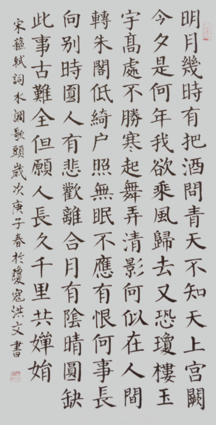 明月幾時有把酒問青天不知天上宮闕
今夕是何年我欲乘風歸去又恐瓊樓玉
宇高處不勝寒起舞弄清影何似在人間
轉朱閣低綺户照無眠不應有恨何事長
向别時圓人有悲歡離合月有陰晴圓缺
此事古難全但願人長久千里共嬋娟
宋蘇軾詞水調歌頭歲次庚子春於瓊 洪文書